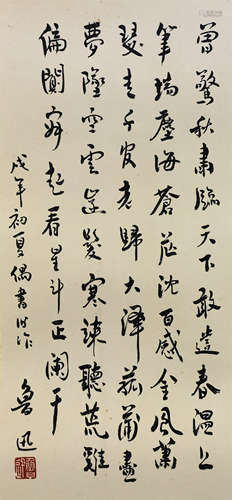 曾驚秋肅臨天下敢遣春温上
筆端塵海蒼茫沈百感金風蕭
瑟走千官老歸大澤菰蒲盡
夢墜空雲齒髮寒竦聽荒雞
偏闃寂起看星斗正闌干
戊年初夏偶書旧作
魯迅